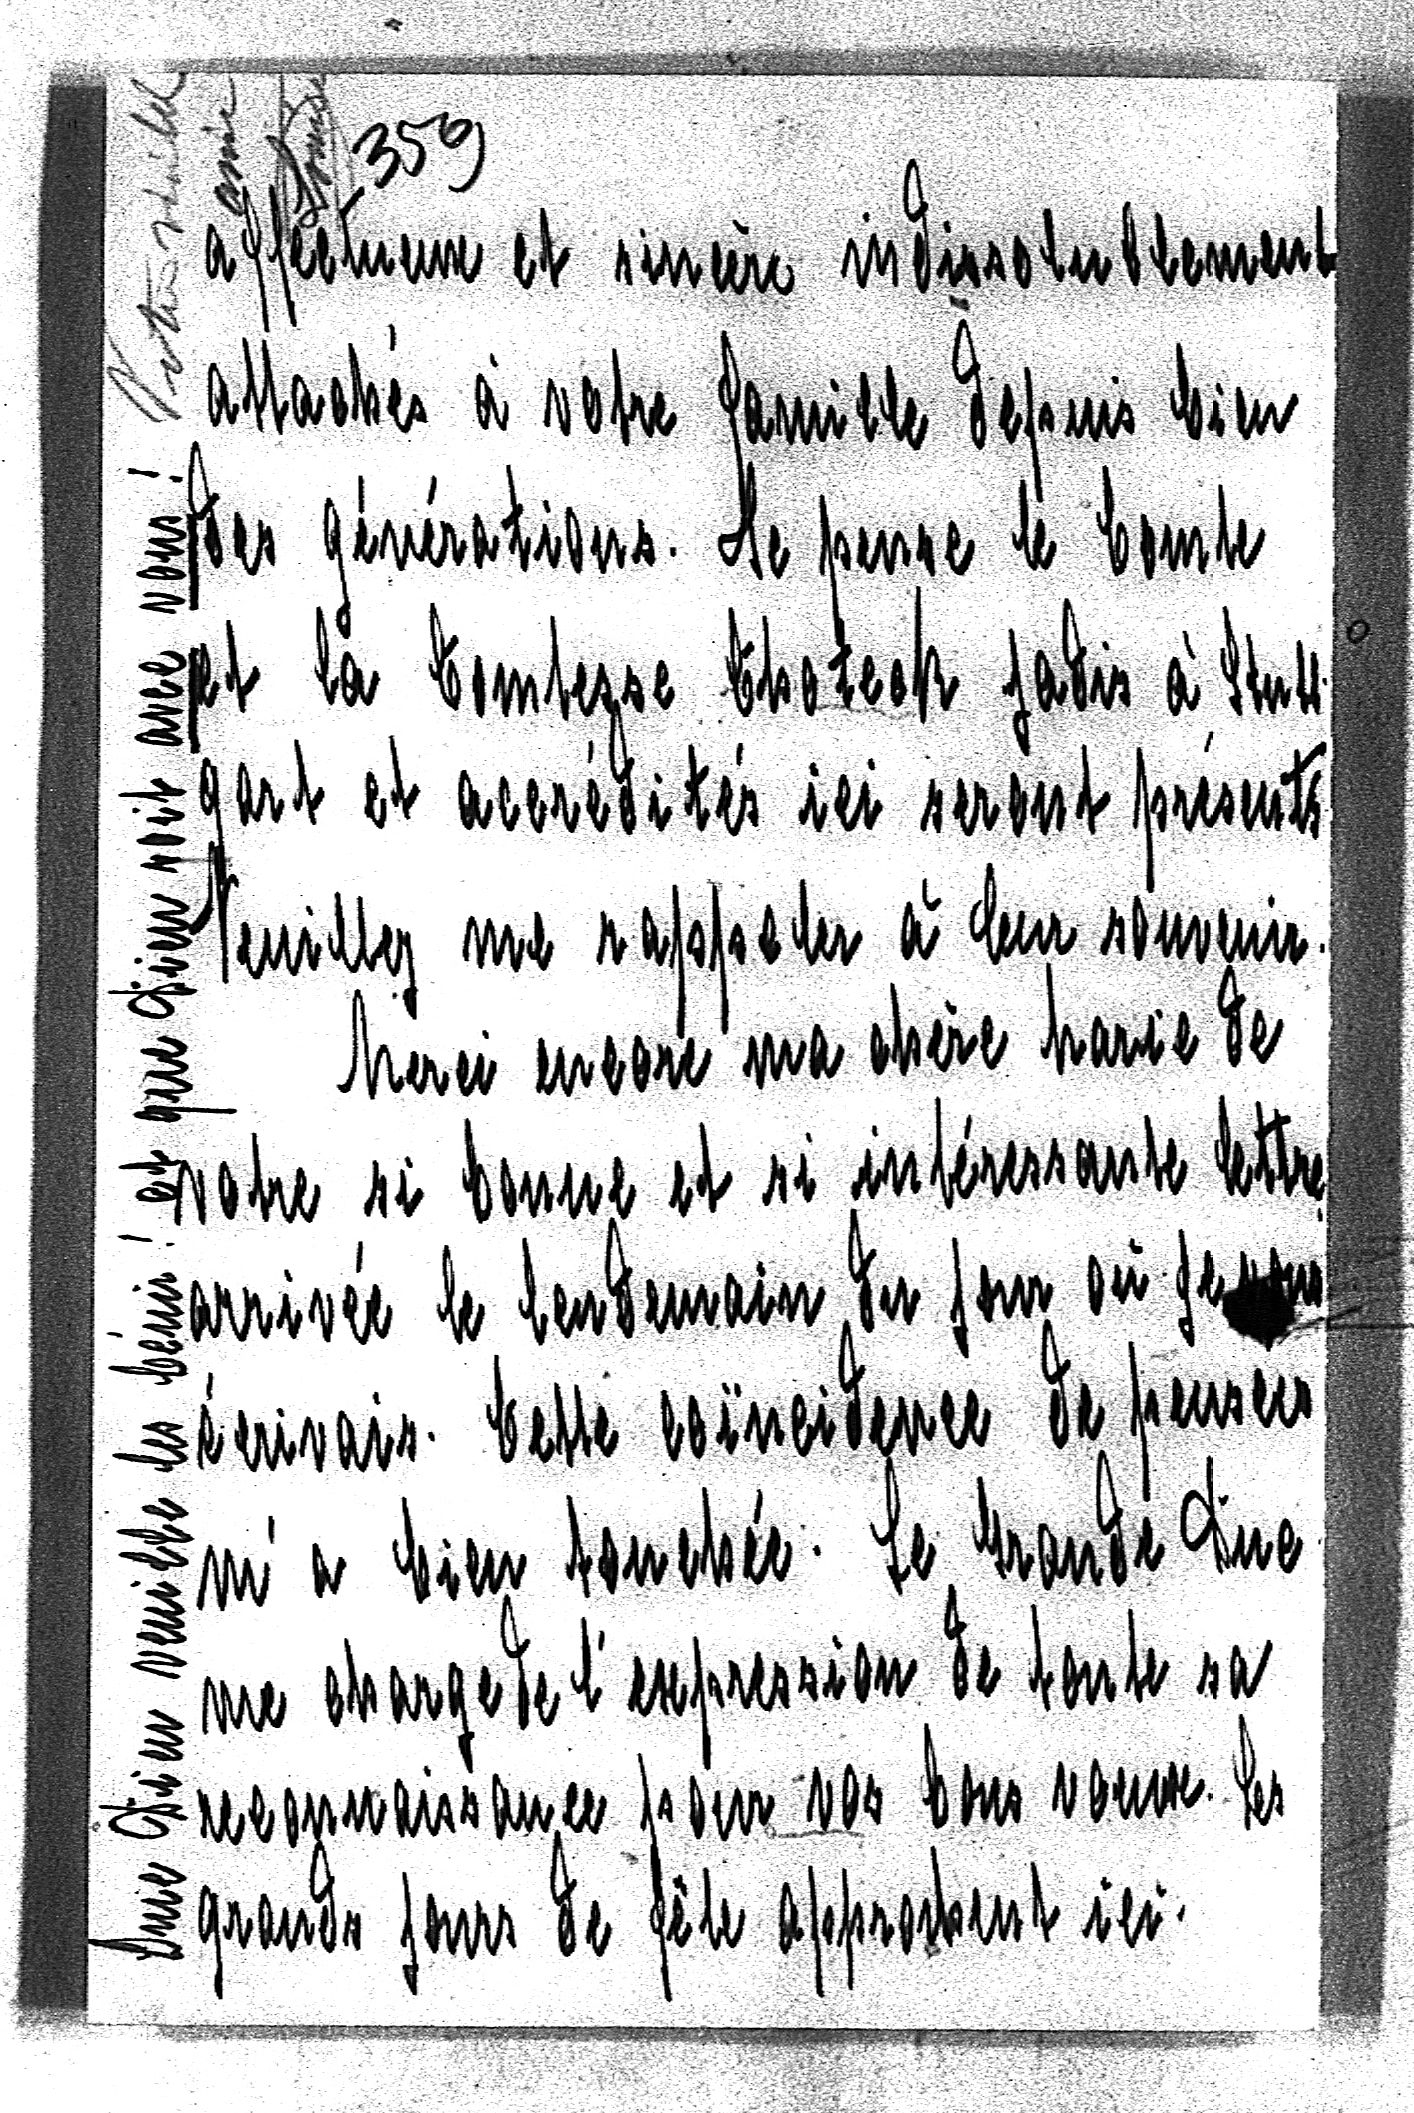 359
affectueuse et sincère indissolublement
attachés à votre famille depuis bien
des générations. Je pense le Comte
et la Comtesse Choteck jadis à Stutt-
gart et accrédités ici seront présents.
Veuillez me rappeler à leur souvenir.
Merci encore ma chère Marie de
votre si bonne et si intéressante lettre
arrivée le lendemain du jour où je vous
écrivais. Cette coïncidence de pensées
m'a bien touchée. Le Grande Duc
me charge de l'expression de toute sa
reconnaissance pour vos bons voeux. Les
grands jours de fête approchent ici.
Que Dieu veuille les bénir! et que Dieu soit avec vous!
Votre
amie
Louise